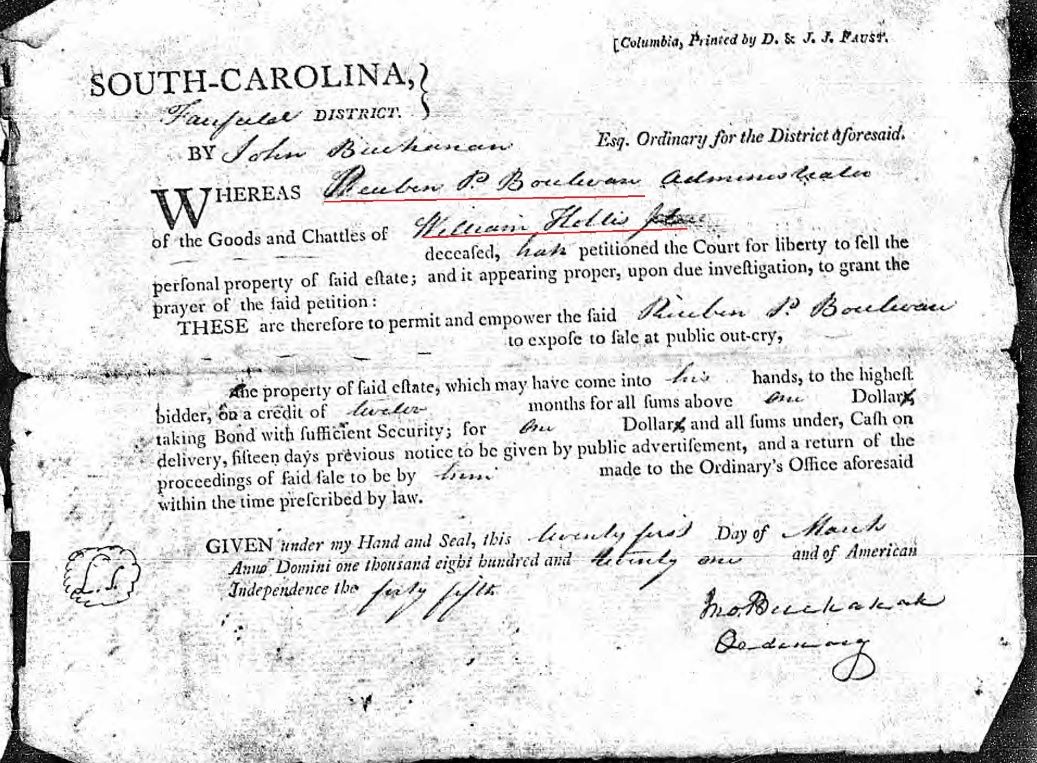 [Columbia, Printed by D. & J. J. FAUST.
SOUTH-CAROLINA,
Fairfield DISTRICT.
BY John Buchanan Esq. Ordinary for the District aforesaid.
WHEREAS Reuben P. Boulwan Administrator
of the Goods and Chattles of William Hollis
deceaſed, hath petitioned the Court for liberty to ſell the
perſonal property of ſaid eſtate; and it appearing proper, upon due inveſtigation, to grant the
prayer of the ſaid petition:
THESE are therefore to permit and empower the ſaid Reuben P. Boulwan
to expoſe to ſale at public out-cry,
the property of ſaid eſtate, which may have come into his hands, to the higheſt
bidder, on a credit of twelve months for all ſums above one Dollar
taking Bond with ſufficient Security; for one Dollar and all ſums under, Caſh on
delivery, fifteen days previous notice to be given by public advertiſement, and a return of the
proceedings of ſaid ſale to be by him made to the Ordinary's Office aforesaid
within the time preſcribed by law.
GIVEN under my Hand and Seal, this twenty first Day of March
Anno Domini one thousand eight hundred and twenty one and of American
Independence the forty fifth
L.S.
Jno. Buchanan
Ordinary